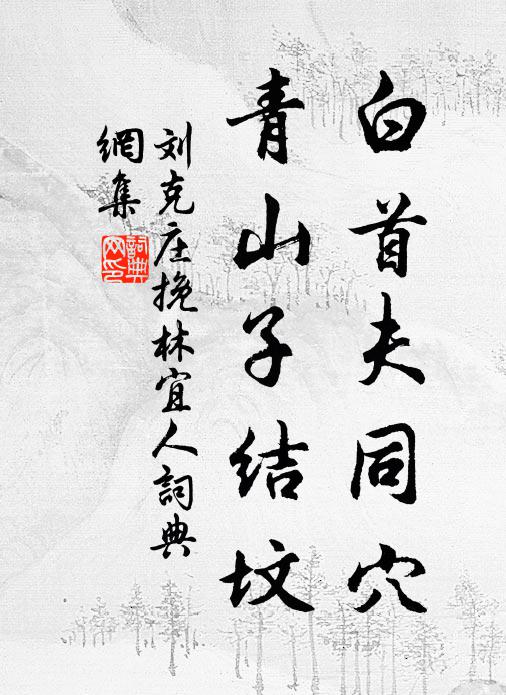 白首夫同穴
青山子结坟
刘克庄挽林宜人詞典
網集
詞典
网印